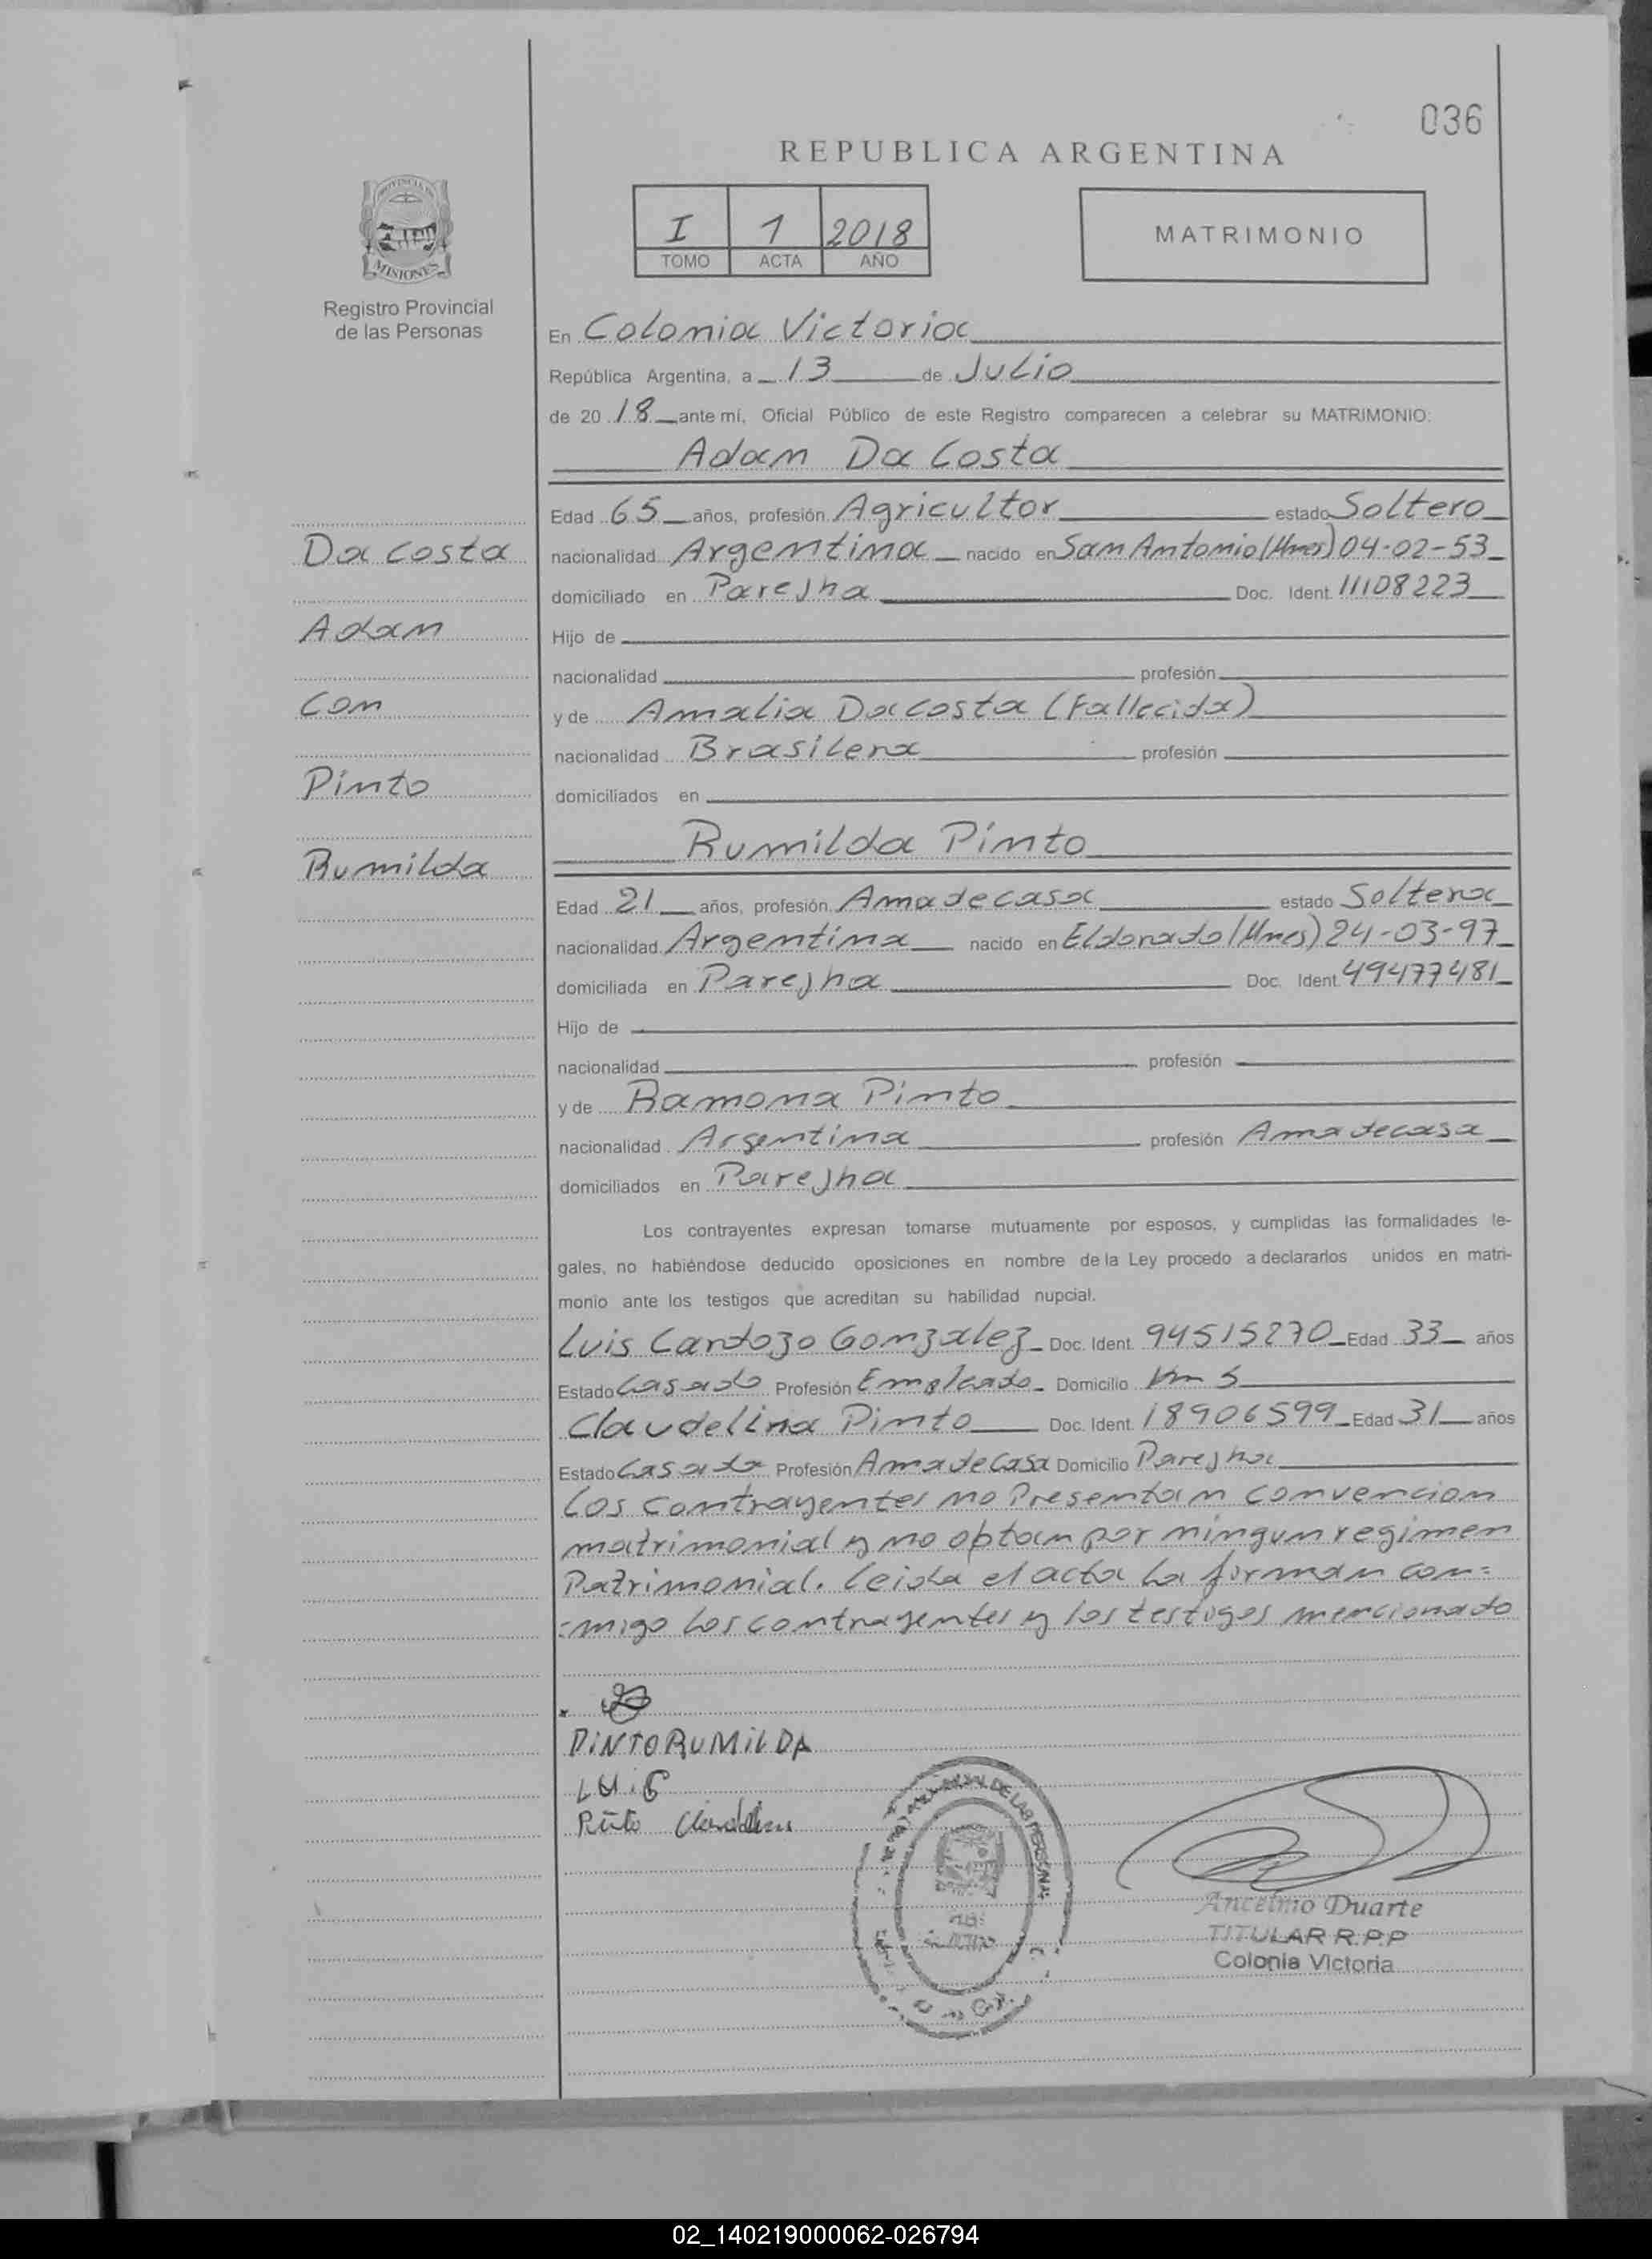 036
REPUBLICA ARGENTINA
PROVINCIA DE
MISIONES
Registro Provincial
de las Personas
I 1 2018
TOMO ACTA AÑO
MATRIMONIO
En Colonia Victoria
República Argentina, a 13 de Julio
de 2018 ante mí, Oficial Público de este Registro comparecen a celebrar su MATRIMONIO:
Adam Da Costa
Edad 65 años, profesión Agricultor estado Soltero
Da Costa
nacionalidad Argentina nacido en San Antonio (Mnes) 04-02-53
domiciliado en Parejha Doc. Ident. 11108223
Adam
Hijo de
nacionalidad profesión
Con
y de Amalia Da Costa (Fallecida)
nacionalidad Brasilera profesión
Pinto
domiciliados en
Rumilda Pinto
Rumilda
Edad 21 años, profesión Ama de casa estado Soltera
nacionalidad Argentina nacido en Eldorado (Mnes) 24-03-97
domiciliada en Parejha Doc. Ident. 49477481
Hijo de
nacionalidad profesión
y de Ramona Pinto
nacionalidad Argentina profesión Ama de casa
domiciliados en Parejha
Los contrayentes expresan tomarse mutuamente por esposos, y cumplidas las formalidades le-
gales, no habiéndose deducido oposiciones en nombre de la Ley procedo a declararlos unidos en matri-
monio ante los testigos que acreditan su habilidad nupcial.
Luis Cardozo Gonzalez Doc. Ident. 94515270 Edad 33 años
Estado Casado Profesión Empleado Domicilio Km 5
Claudelina Pinto Doc. Ident. 18906599 Edad 31 años
Estado Casada Profesión Ama de Casa Domicilio Parejha
Los contrayentes no Presentan convencion
matrimonial y no optan por ningun regimen
Patrimonial. Leida el acta la firman con=
=migo los contrayentes y los testigos mencionado
PINTO RUMILDA
LUIS
Pinto
DE LAS PERSONAS
Ancelmo Duarte
TITULAR R.P.P
Colonia Victoria
02_140219000062-026794